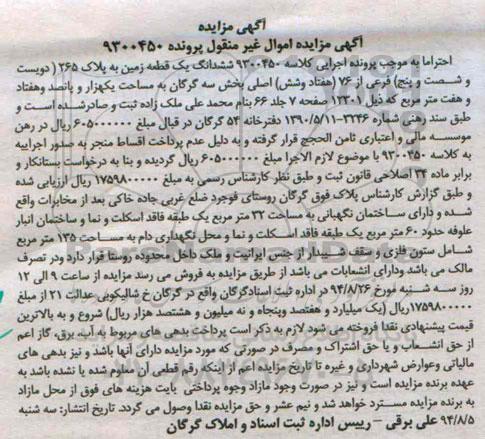 آگهی مزایده
آگهی مزایده اموال غیر منقول پرونده ۹۳۰۰۴۵۰
احتراما به موجب پرونده اجرایی کلاسه ۹۳۰۰۴۵۰ ششدانگ یک قطعه زمین به پلاک ۲۶۵ ( دویست
و شصت و پنج) فرعی از ۷۶ (هفتاد وشش) اصلی بخش سه گرگان به مساحت یکهزار و پانصد وهفتاد
و هفت متر مربع که ذیل ۱۲۲۰۱ صفحه ۷ جلد ۶۶ بنام محمد علی ملک زاده ثبت و صادرشده است و
طبق سند رهنی شماره ۳۲۴۶-۱۳۹۰/۵/۱۱ دفترخانه ۵۴ گرگان در قبال مبلغ ۶۰۵۰۰۰۰۰۰ ریال در رهن
موسسه مالی و اعتباری ثامن الحجج قرار گرفته و به دلیل عدم پرداخت اقساط منجر به صدور اجراییه
به کلاسه ۹۳۰۰۴۵۰ با موضوع لازم الاجرا مبلغ ۶۰۵۰۰۰۰۰۰ ریال گردیده و بنا به درخواست بستانکار و
برابر ماده ۳۴ اصلاحی قانون ثبت و طبق نظر کارشناس رسمی به مبلغ ۱۷۵۹۸۰۰۰۰۰ ریال ارزیابی شده
و طبق گزارش کارشناس پلاک فوق گرگان روستای فوجرد ضلع غربی جاده خاکی بعد از مخابرات واقع
شده و دارای ساختمان نگهبانی به مساحت ۳۲ متر مربع یک طبقه فاقد اسکلت و نما و ساختمان انبار
علوفه حدود ۶۰ متر مربع یک طبقه فاقد اسکلت و نما و محل نگهداری دام به مساحت ۱۲۵ متر مربع
شامل ستون فلزی و سقف شیبدار از جنس ایرانیت و ملک داخل محدوده روستا قرار دارد ودر تصرف
مالک می باشد ودارای انشعابات می باشد از طریق مزایده به فروش می رسد مزایده از ساعت ۹ الی ۱۲
روز سه شنبه مورخ ۹۴/۸/۲۶ در اداره ثبت اسنادگرگان واقع در گرگان خ شالیکوبی عدالت ۲۱ از مبلغ
۱۷۵۹۸۰۰۰۰۰ریال (یک میلیارد و هفتصد وپنجاه و نه میلیون و هشتصد هزار ریال) شروع و به بالاترین
قیمت پیشنهادی نقدا فروخته می شود لازم به ذکر است پرداخت بدهی های مربوط به آب، برق، گاز اعم
از حق انشعاب و یا حق اشتراک و مصرف در صورتی که مورد مزایده دارای آنها باشد و نیز بدهی های
مالیاتی وعوارض شهرداری و غیره تا تاریخ مزایده اعم از اینکه رقم قطعی آن معلوم شده یا نشده باشد به
عهده برنده مزایده است و نیز در صورت وجود مازاد وجوه پرداختی بابت هزینه های فوق از محل مازاد
به برنده مزایده مسترد خواهد شد و نیم عشر و حق مزایده نقدا وصول می گردد. تاریخ انتشار: سه شنبه
۹۴/۸/۵ علی برقی - رییس اداره ثبت اسناد و املاک گرگان